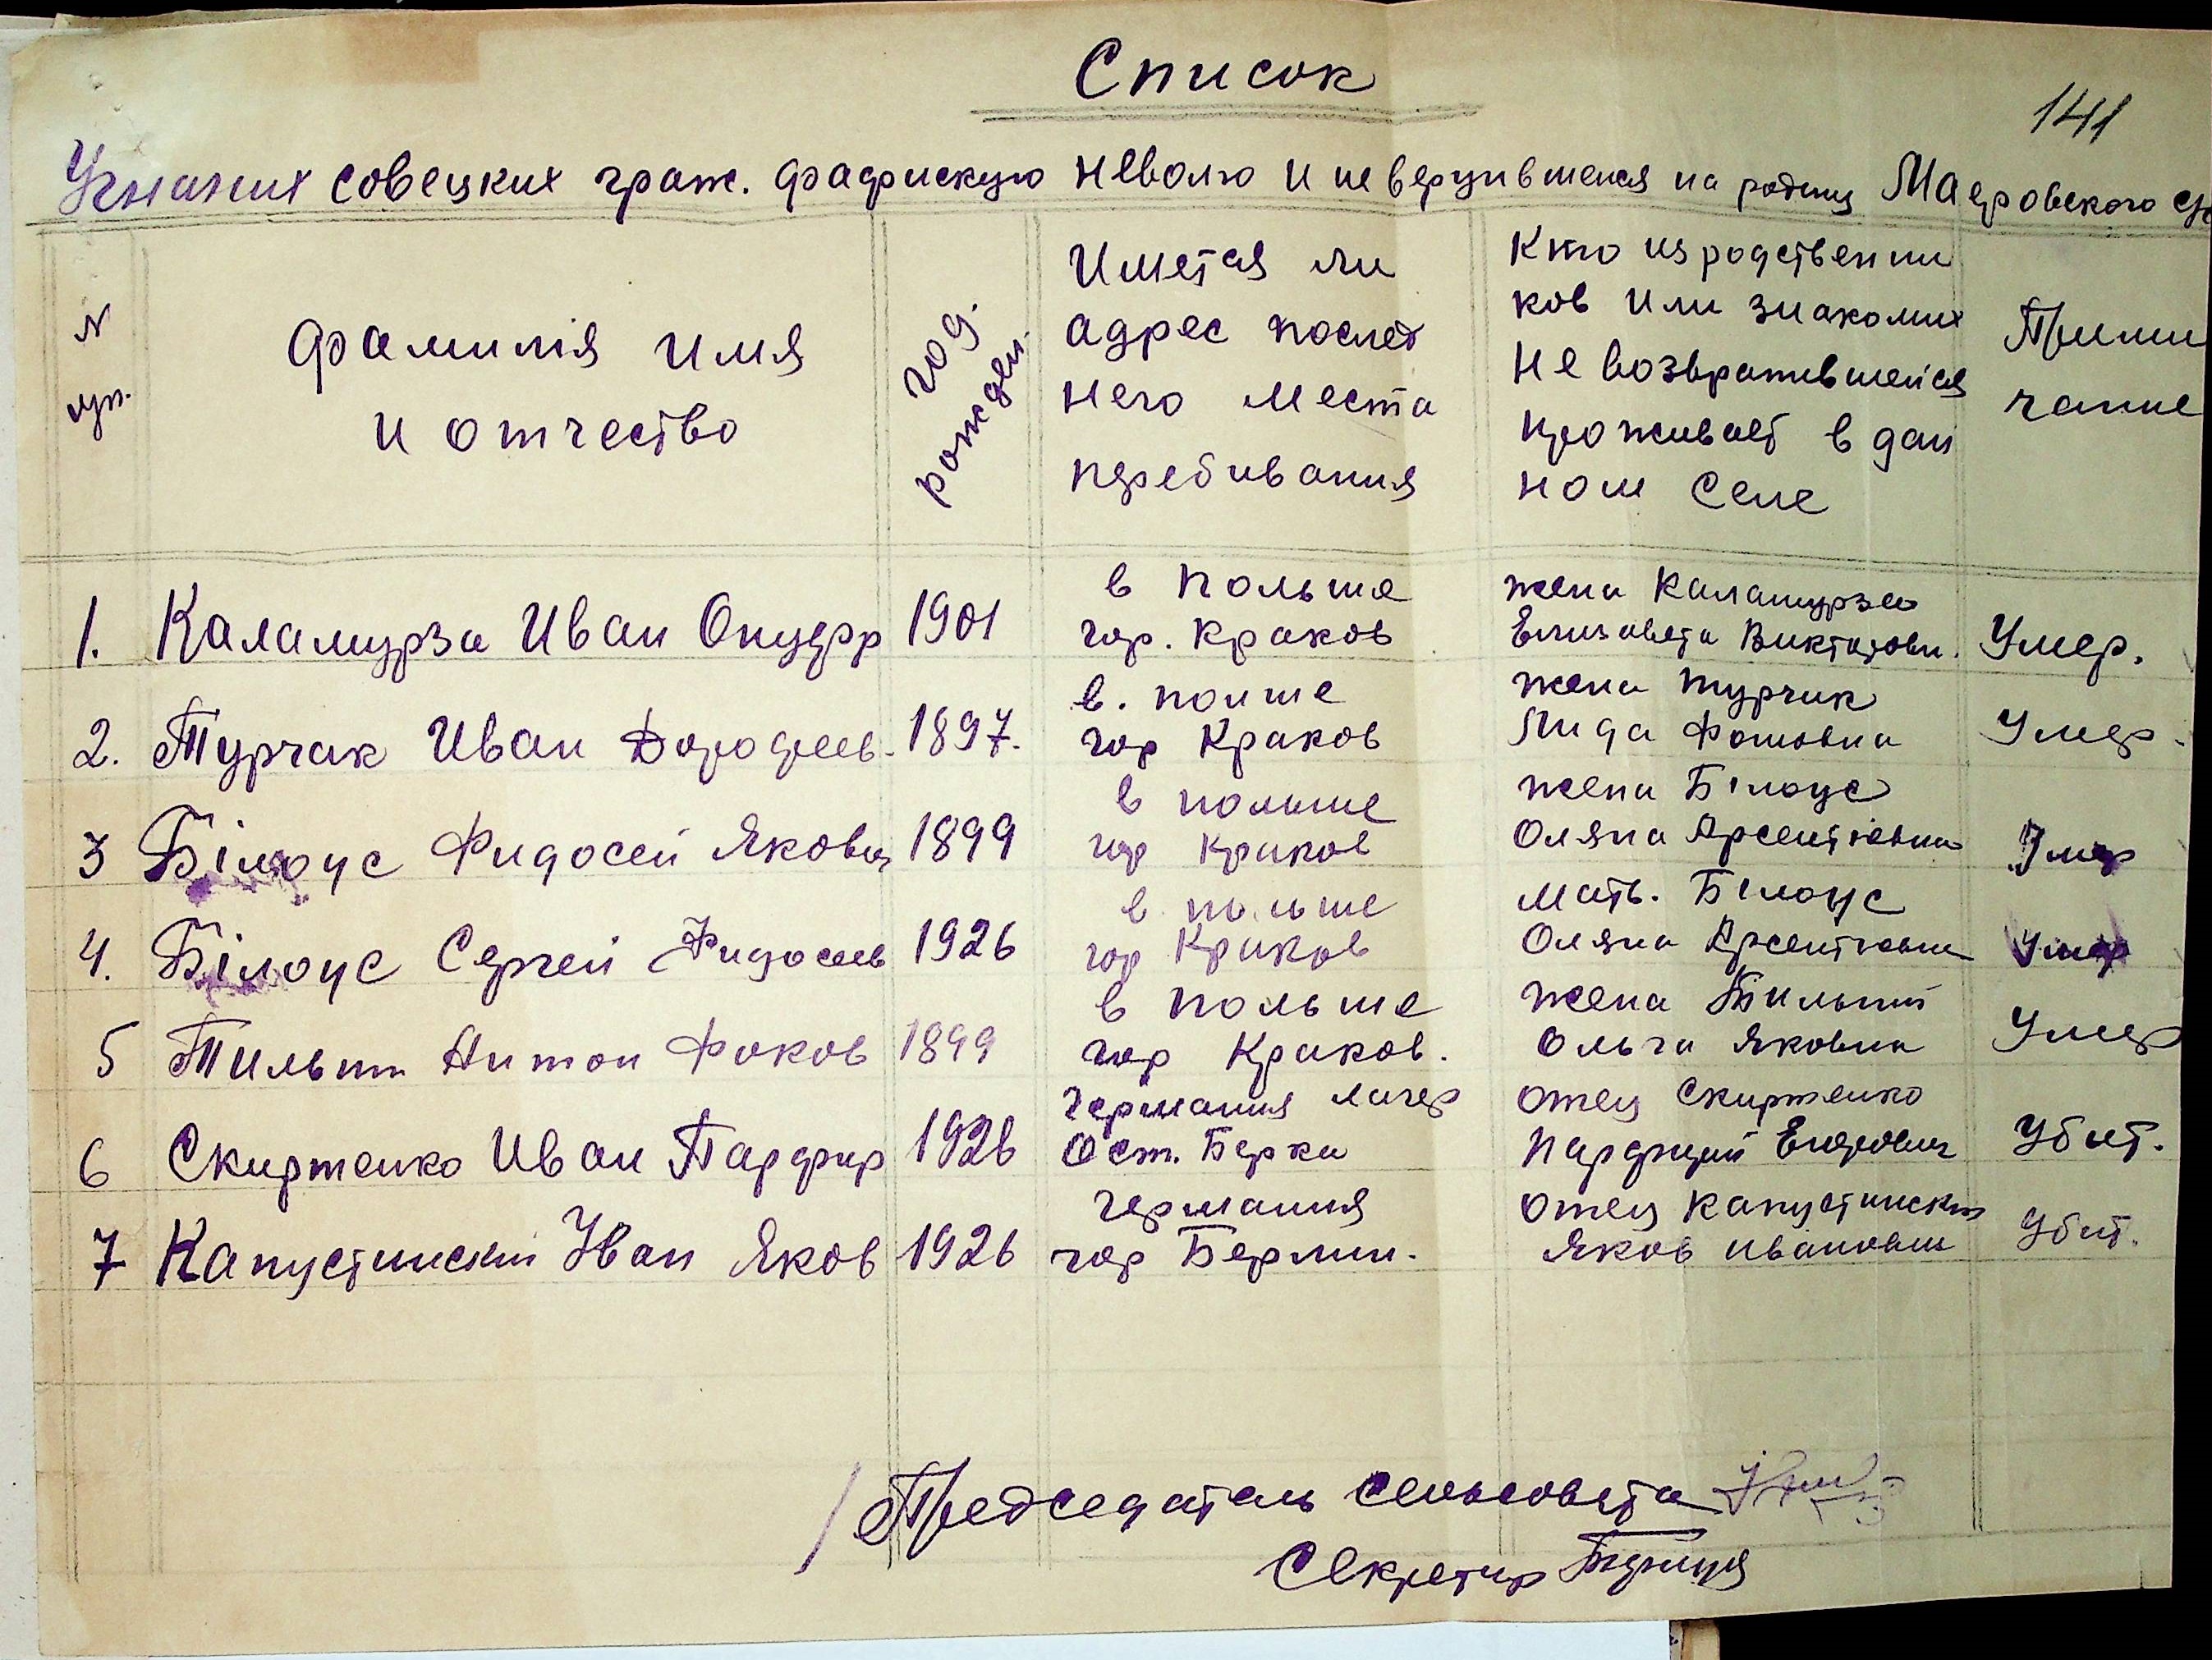 Список
141
Угнаних совецких граж. фафискую неволю и не вернувшеися на родину Маяровского с/с
N пп.
Фамилія имя и отчество
год. рожден.
Иметая ли адрес послед него места пребивания
Кто из родственни ков или знакомих не возвратившейся проживает в дан ном селе
Приме чание
1. Каламурза Иван Онуфр 1901 в Польше гор. Краков жена Каламурза Елизавета Викторовн. Умер.
2. Турчак Иван Дорофеев. 1897. в. полше гор Краков жена Турчик Лида Фомовна Умер.
3 Білоус Фидосей Якович 1899 в польше гор Краков жена Білоус Оляна Арсентіевна Умер
4. Білоус Сергей Фидосеев 1926 в польше гор Краков мать. Білоус Оляна Арсентіевна Умер
5 Тильпт Антон Фоков 1899 в польше гор Краков. жена Тильпт Ольга Яковна Умер
6 Скиртенко Иван Парфир 1926 Германия лагер Ост. Берки отец Скиртенко Парфирий Егорович Убит.
7 Капустинский Иван Яков 1926 Германия гор Берлин. отец Капустинский Яков Иванович Убит.
Председатель сельсовета
Секретар